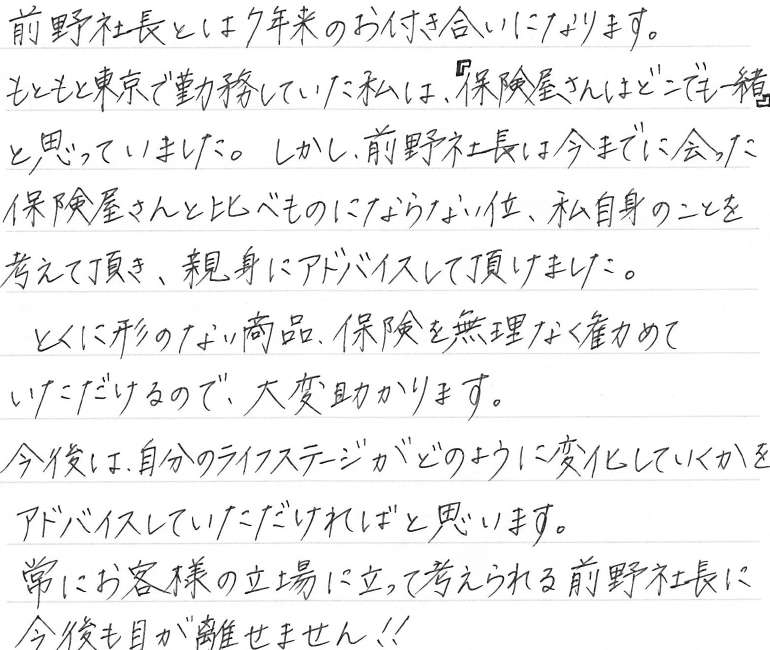 前野社長とは7年来のお付き合いになります。
もともと東京で勤務していた私は、『保険屋さんはどこでも一緒』
と思っていました。しかし、前野社長は今までに会った
保険屋さんと比べものにならない位、私自身のことを
考えて頂き、親身にアドバイスして頂けました。
とくに形のない商品、保険を無理なく勧めて
いただけるので、大変助かります。
今後は、自分のライフステージがどのように変化していくかを
アドバイスしていただければと思います。
常にお客様の立場に立って考えられる前野社長に
今後も目が離せません!!